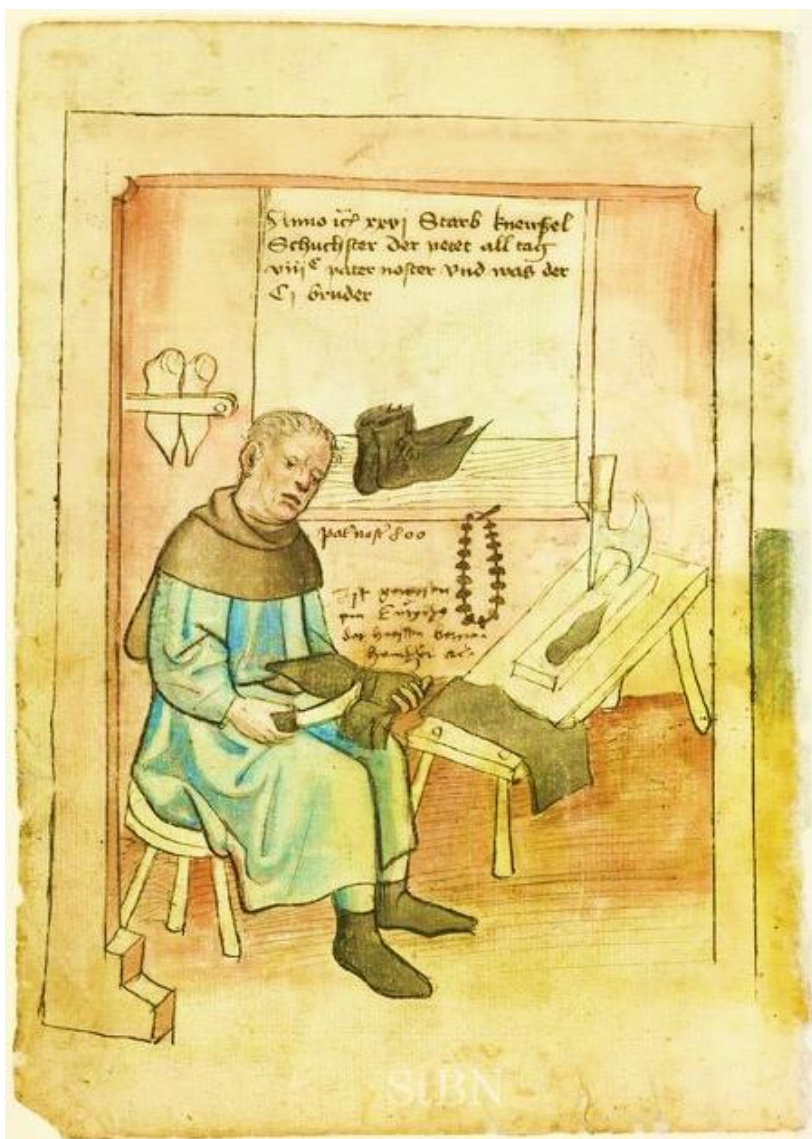 Anno iiijᶜ xxvj Starb kneussel
Schuchster der petet all tag
viijᶜ pater noster vnd was der
Cj bruder
pat nost 800
Ist gewessen
ein
der
StBN